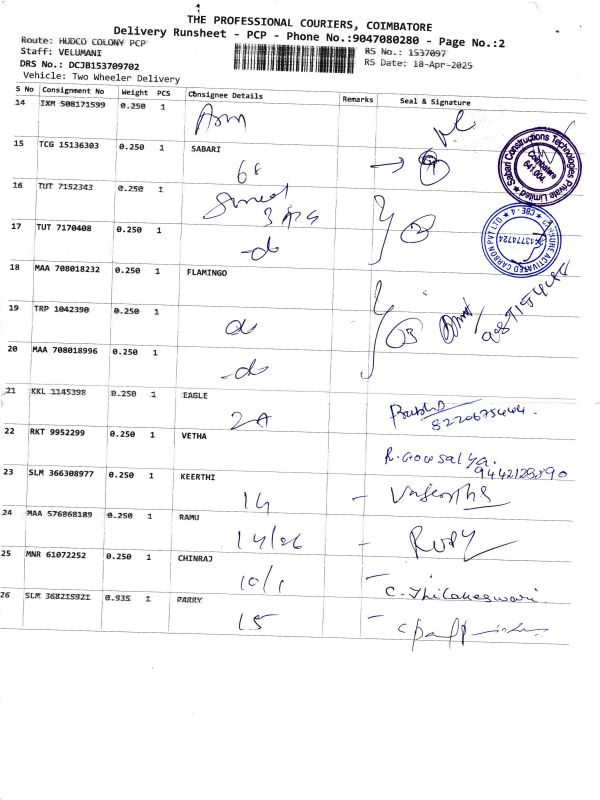 THE PROFESSIONAL COURIERS, COIMBATORE
Delivery Runsheet - PCP - Phone No.:9047080280 - Page No.:2
Route: HUDCO COLONY PCP
RS No.: 1537097
Staff: VELUMANI
RS Date: 18-Apr-2025
DRS No.: DCJB153709702
Vehicle: Two Wheeler Delivery
S No Consignment No Weight PCS Consignee Details Remarks Seal & Signature
14 IXM 508171599 0.250 1
15 TCG 15136303 0.250 1 SABARI
68
Sabari Constructions Technologies Private Limited
Coimbatore 641 004
16 TUT 7152343 0.250 1
17 TUT 7170408 0.250 1
-do
18 MAA 708018232 0.250 1 FLAMINGO
19 TRP 1042390 0.250 1
do
20 MAA 708018996 0.250 1
-do
21 KKL 1145398 0.250 1 EAGLE
2A
22 RKT 9952299 0.250 1 VETHA
R. Gowsalya.
23 SLM 366308977 0.250 1 KEERTHI
14
24 MAA 576868189 0.250 1 RAMU
14/26
25 MNR 61072252 0.250 1 CHINRAJ
10/1
C. Thilakeswari.
26 SLM 368215921 0.935 1 PARRY
15